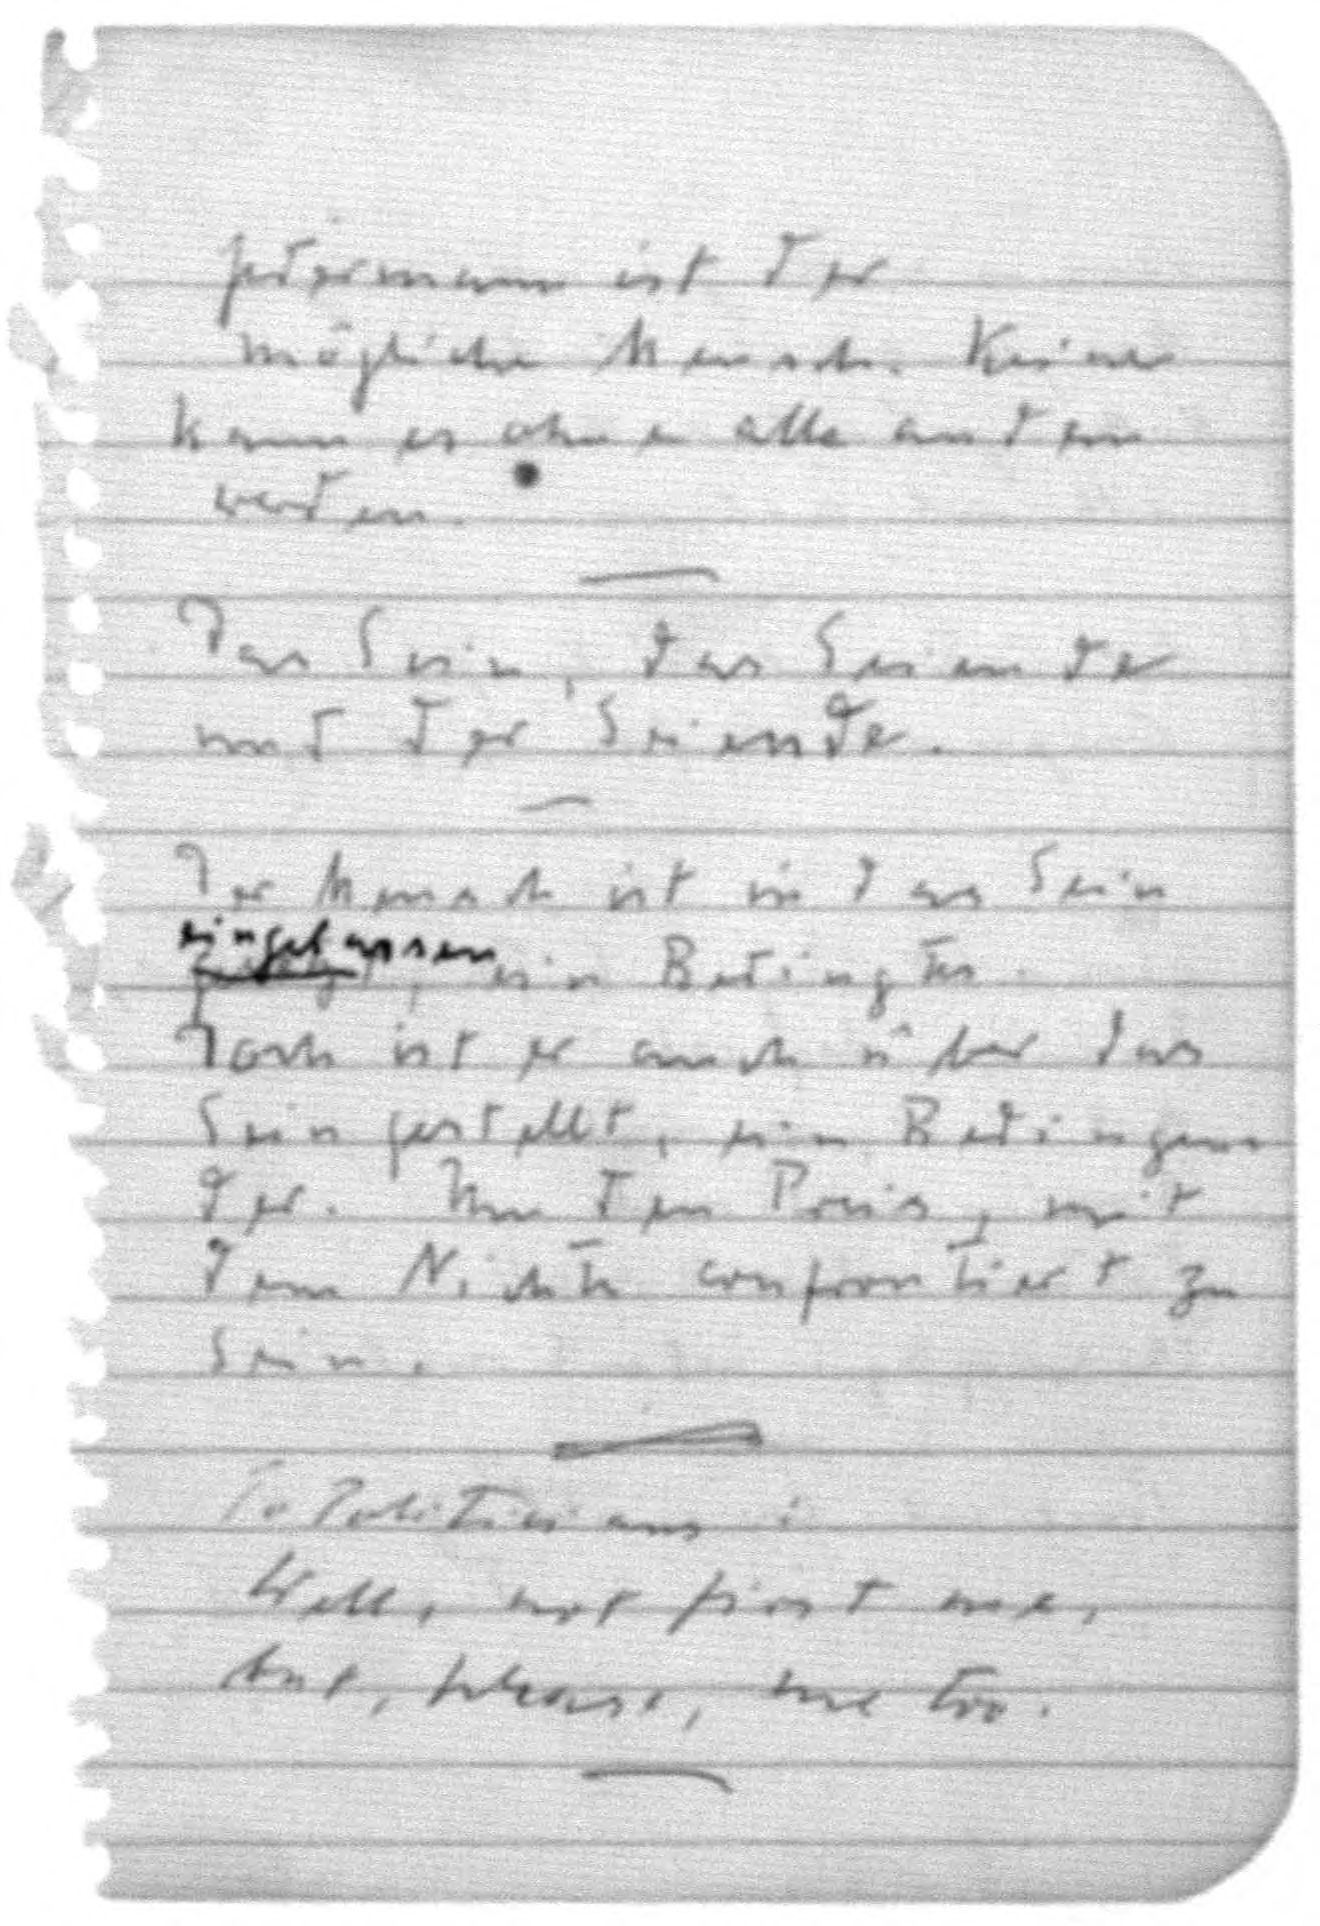 Jedermann ist der
mögliche Mensch. Keiner
kann es ohne alle andern
werden.
Das Sein, das Seiende
und der Seiende.
Der Mensch ist in das Sein
eingelassen, ein Bedingter.
Doch ist er auch über das
Sein gestellt, ein Bedingen
der. Um den Preis, mit
dem Nichts confrontiert zu
sein.
To Politicians:
Well, not first me,
but, please, me too.